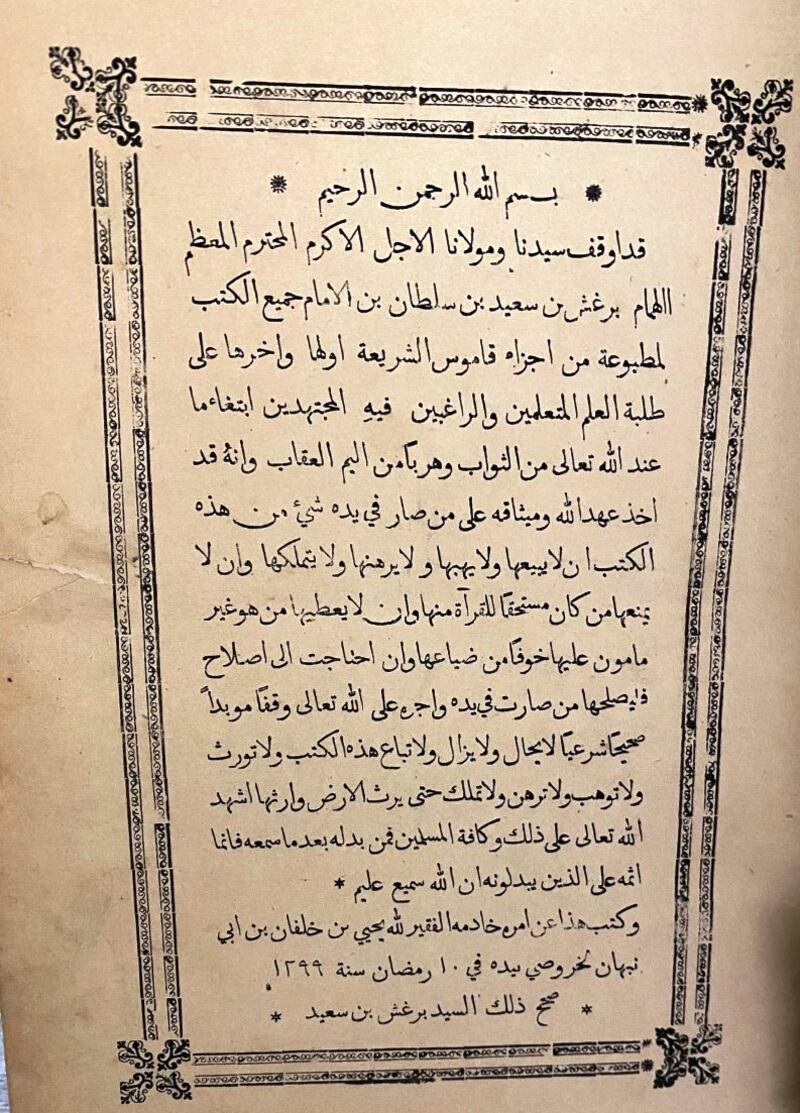 بسم الله الرحمن الرحيم
قد اوقف سيدنا ومولانا الاجل الاكرم المحترم المعظم
االهمام برغش بن سعيد بن سلطان بن الامام جميع الكتب
لمطبوعة من اجزاء قاموس الشريعة اولها واخرها على
طلبة العلم المتعلمين والراغبين فيهِ المجتهدين ابتغاء ما
عند الله تعالى من الثواب وهربًا من اليم العقاب وانهُ قد
اخذ عهد الله وميثاقه على من صار في يده شيءٌ من هذه
الكتب ان لا يبيعها ولا يهبها و لا يرهنها ولا يتملكها وان لا
يمنعها من كان مستحقًا للقرآة منها وان لا يعطيها من هو غير
مامون عليها خوفًا من ضياعها وان احتاجت الى اصلاح
فليصلحها من صارت في يده واجره على الله تعالى وقفًا موبداً
صحيحًا شرعيًا لا يحال ولا يزال ولا تباع هذه الكتب ولا تورث
ولا توهب ولا ترهن ولا تملك حتى يرث الارض وارثها اشهد
الله تعالى على ذلك وكافة المسلمين فمن بدله بعد ما سمعه فانما
اثمه على الذين يبدلونه ان الله سميع عليم *
وكتب هذا عن امره خادمه الفقير لله يحيي بن خلفان بن ابي
نبهان لخروصي بيده في ١٠ رمضان سنة ١٢٩٩
* صحيح ذلك السيد برغش بن سعيد *